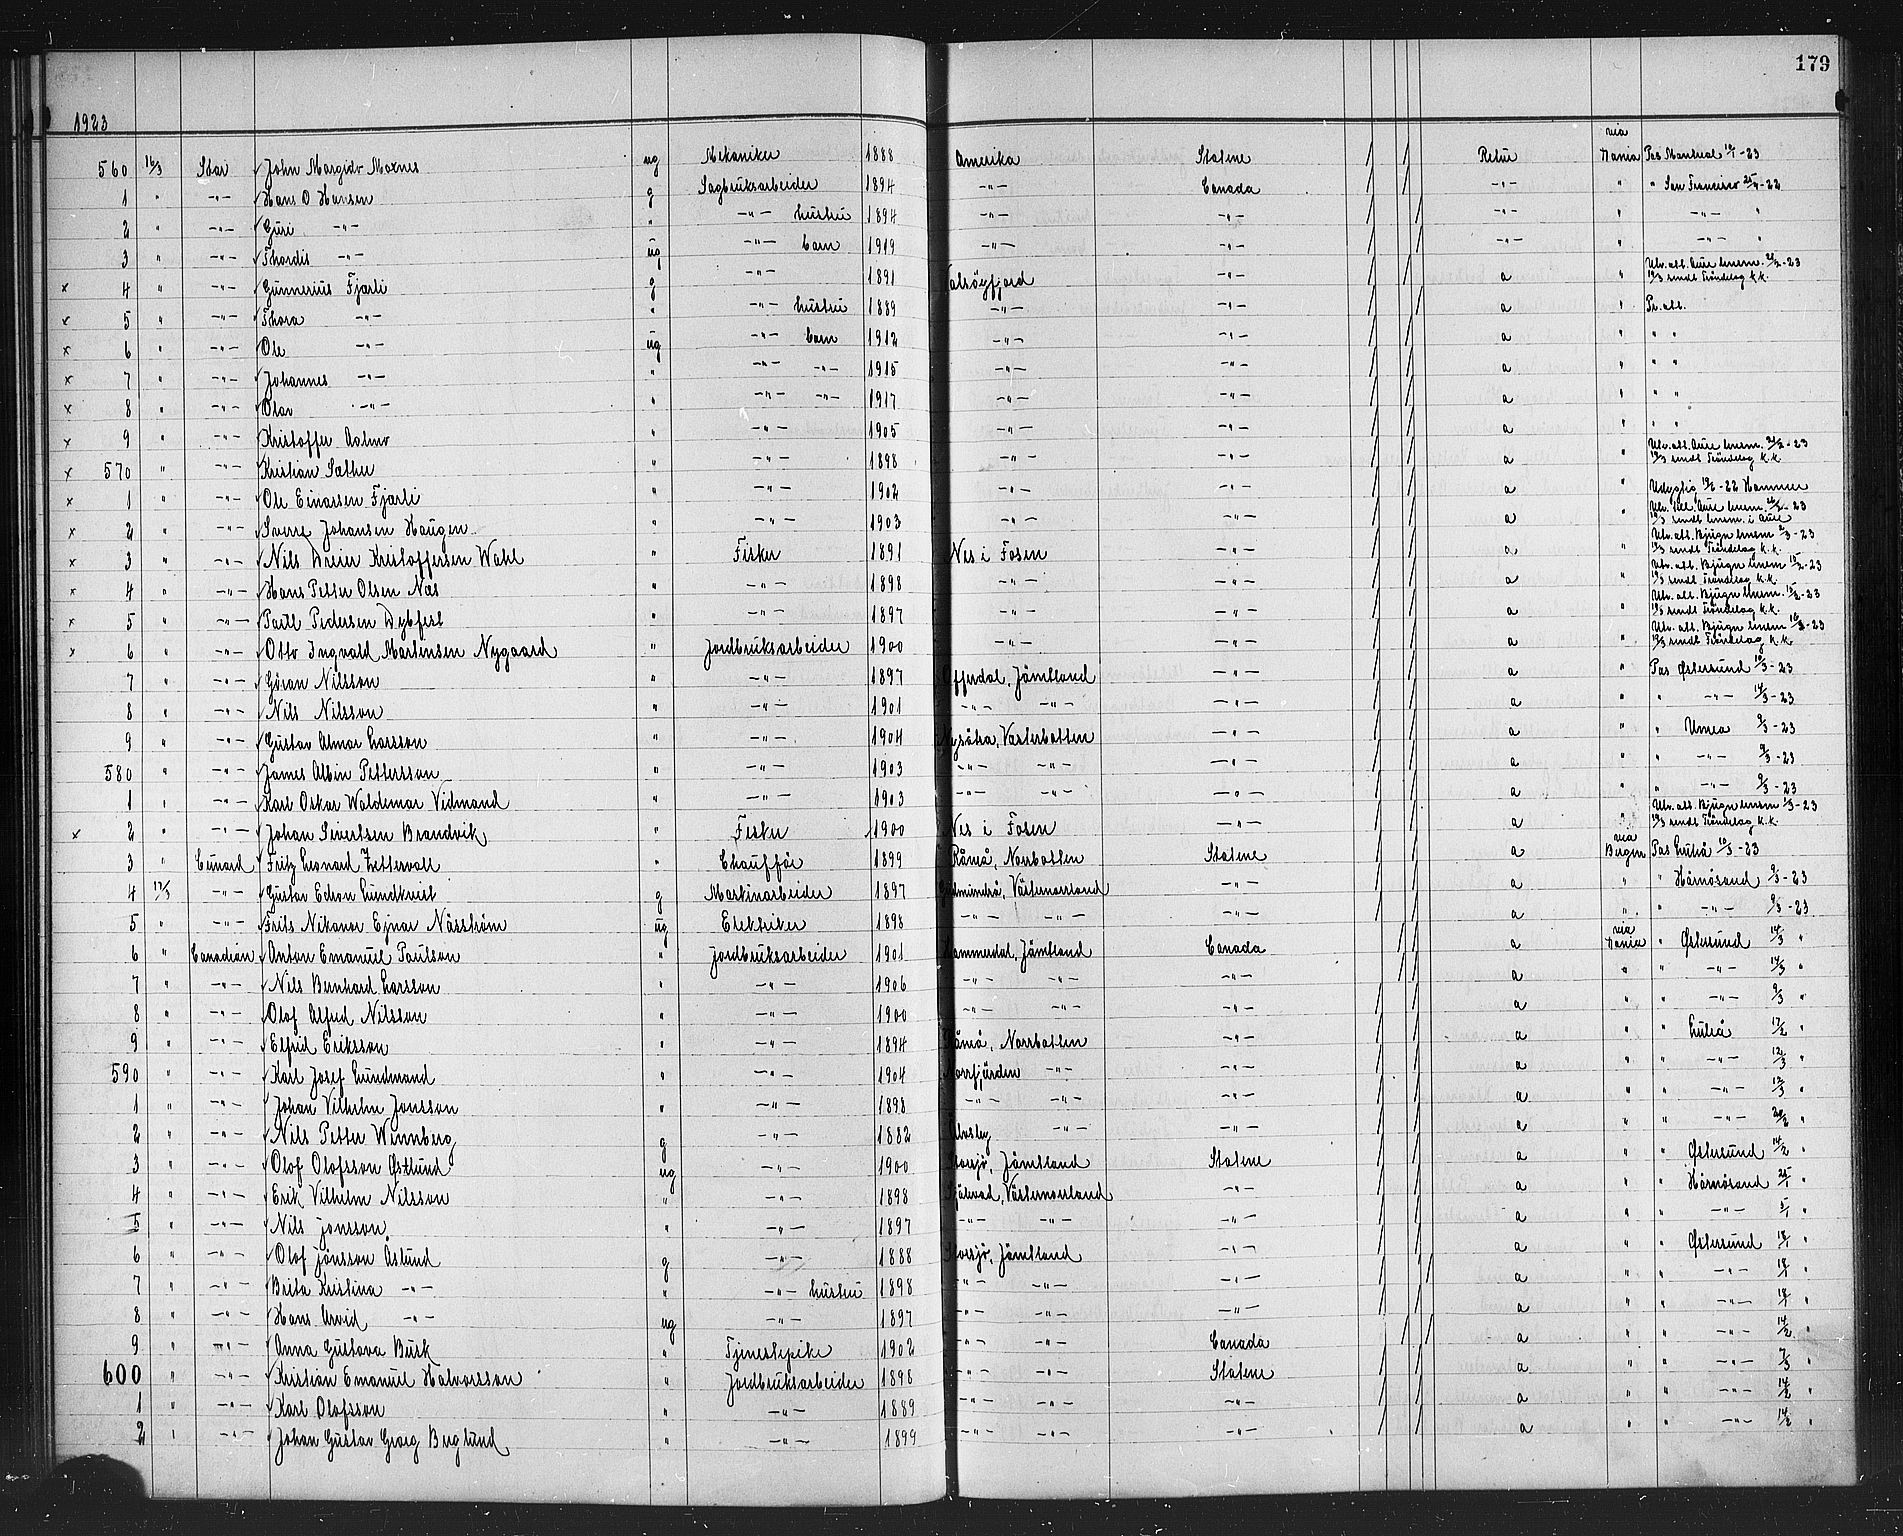 179
1923
560 16/3 Star John Margido Moxnes ug Mekaniker 1888 Amerika Statene Retur via Hania Pas Montreal -23
1 " -"- Hans O Hansen g Sagbruksarbeider 1894 -"- Canada -"- " " San Francisco -22
2 " -"- Guri -"- " -"- hustru 1894 -"- -"- -"- " -"- "
3 " -"- Thordis -"- ug -"- barn 1919 -"- -"- -"- " -"- "
x 4 " -"- Gunnerius Fjærli g -"- 1891 Valsøyfjord -"- a " Utv. att. Aure lensm. -23
19/3 sendt Trøndelag k.k.
x 5 " -"- Thora -"- " -"- hustru 1889 -"- -"- a " Pr. att.
x 6 " -"- Ole -"- ug -"- barn 1912 -"- -"- a " " "
x 7 " -"- Johannes -"- " -"- -"- 1915 -"- -"- a " " "
x 8 " -"- Olav -"- " -"- -"- 1917 -"- -"- a " " "
x 9 " -"- Kristoffer Aalmo " -"- 1905 -"- -"- a " " "
x 570 " -"- Kristian Sæther " -"- 1898 -"- -"- a " Utv. att. Aure lensm. -23
19/3 sendt Trøndelag k.k.
x 1 " -"- Ole Einarsen Fjærli " -"- 1902 -"- -"- a " Udygtig -22 Hammer
x 2 " -"- Sverre Johansen Haugen " -"- 1903 -"- -"- a Utv. att. Aure lensm. -23
19/3 sendt lensm. i Aure
x 3 " -"- Nils Dreier Kristoffersen Wahl " Fisker 1891 Nes i Fosen -"- a " Utv. att. Bjugn lensm -23
19/3 sendt Trøndelag k.k.
x 4 " -"- Hans Petter Olsen Næs " -"- 1898 -"- -"- a " Utv. att. Bjugn lensm -23
19/3 sendt Trøndelag k.k.
x 5 " -"- Paul Pedersen Dybfest " -"- 1897 -"- -"- a " Utv. att. Bjugn lensm. -23
19/3 sendt Trøndelag k.k.
x 6 " -"- Otto Ingvald Martensen Nygaard " Jordbruksarbeider 1900 -"- -"- a " Utv. att. Bjugn lensm -23
19/3 sendt Trøndelag k.k.
7 " -"- Göran Nilsson " -"- 1897 Offerdal, Jämtland -"- a " Pas Østersund 10/3-23
8 " -"- Nils Nilsson " -"- 1901 -"- -"- -"- a " " -"- 14/3-23
9 " -"- Gustav Almar Larsson " -"- 1904 Nysätra, Västerbotten -"- a " " Umea 9/3-23
580 " -"- James Albin Pettersson " -"- 1903 -"- -"- -"- a " " -"- 9/3-23
1 " -"- Karl Oskar Waldemar Vidmand " -"- 1903 -"- -"- -"- a " " -"- 9/3-23
x 2 " -"- Johan Sivertsen Brandvik " Fisker 1900 Nes i Fosen -"- a " Utv. att. Bjugn lensm -23
19/3 sendt Trøndelag k.k.
3 " Cunard Fritz Leonard Zettervall " Chauffør 1899 Råneå, Norrbotten Statene a via Bergen Pas Luleå 10/3-23
4 17/3 -"- Gustav Edvon Lundkvist g Maskinarbeider 1897 Gudmundrå, Västernorrland -"- a " " Härnösand 9/3-23
5 " -"- Frits Nikanor Ejnar Näsström ug Elektriker 1898 -"- -"- -"- a " " -"- 9/3-23
6 " Canadian Anton Emanuel Paulson " Jordbruksarbeider 1901 Hammerdal, Jämtland Canada a via Hania " Østersund 14/3 "
7 " -"- Nils Bernhard Larsson " -"- 1906 -"- -"- -"- a " " -"- 14/3 "
8 " -"- Olof Alfred Nilsson " -"- 1900 -"- -"- -"- a " " -"- 9/3 "
9 " -"- Elfrid Eriksson " -"- 1894 Råneå, Norrbotten -"- a " " Luleå 17/2 "
590 " -"- Karl Josef Lundmand " -"- 1904 Norrfjärden -"- -"- a " " -"- 12/3 "
1 " -"- Johan Vilhelm Jonsson " -"- 1898 -"- -"- -"- a " " -"- 12/3 "
2 " -"- Nils Petter Wennberg g -"- 1882 Älvsby -"- -"- a " " -"- 20/2 "
3 " -"- Olof Olofsson Østlund ug -"- 1900 Storsjö, Jämtland Statene a " " Østersund 14/2 "
4 " -"- Erik Vilhelm Nilsson " -"- 1898 Själevad, Västernorrland -"- a " " Härnösand 25/1 "
5 " -"- Nils Jonsson " -"- 1897 -"- -"- -"- a " " -"- 5/1 "
6 " -"- Olof Jönsson Åslund g -"- 1888 Storsjö, Jämtland -"- a " " Østersund 18/1 "
7 " -"- Brita Kristina -"- " -"- hustru 1898 -"- -"- -"- a " " -"- 18/1 "
8 " -"- Hans Arvid -"- ug -"- 1897 -"- -"- -"- a " " -"- 18/1 "
9 " -"- Anna Gustava Busk " Tjenestepike 1902 -"- -"- Canada a " " -"- 14/2 "
600 " -"- Kristian Emanuel Halvarsson " Jordbruksarbeider 1898 -"- -"- Statene a " " -"- 7/3 "
1 " -"- Karl Olofsson " -"- 1889 -"- -"- -"- a " " -"- 14/2 "
2 " -"- Johan Gustav Georg Berglund " -"- 1899 -"- -"- -"- a " " -"- 14/2 "